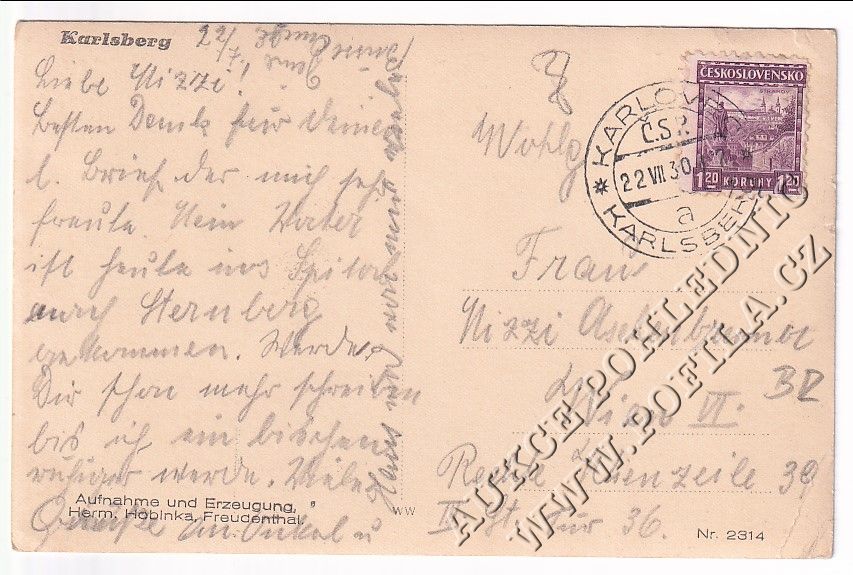 Karlsberg 22/7.
Liebe Mizzi!
Besten Dank für Deinen
l. Brief der mich sehr
freute. Mein Vater
ist heute ins Spital
nach Sternberg
gekommen. Werde
Dir schon mehr schreiben
bis ich ein bischen
ruhiger werde. Viele
Grüße an Onkel u
Aufnahme und Erzeugung
Herm. Hobinka, Freudenthal.
WW
ČESKOSLOVENSKO
STRAHOV
1.20 KORUNY 1.20
KARLOV
Č.S.R.
22 VII 30
a
KARLSBERG
Wohlg
Frau
Mizzi
Wien VI.
Rechte Wienzeile 39
II St. Tür 36.
Nr. 2314
AUKCE POHLEDNIC
WWW.POFILA.CZ